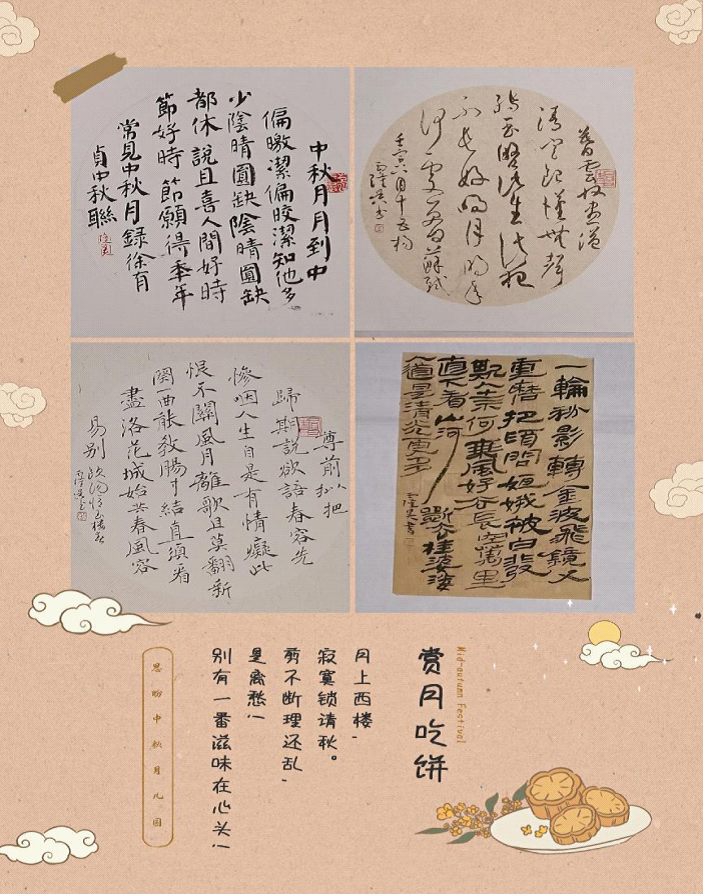 中秋月月到中
偏皦潔偏皎潔知他多
少陰晴圓缺陰晴圓缺
都休說且喜人間好時
節好時節願得年年
常見中秋月錄徐有
貞中秋聯
暮雲收盡溢
清寒銀漢無聲
轉玉盤此生此夜
不長好明月明年
何處看蘇軾
尊前擬把
歸期說欲語春容先
慘咽人生自是有情癡此
恨不關風月離歌且莫翻新
闋一曲能教腸寸結直須看
盡洛花城始共春風容
易別 歐陽修玉樓春
一輪秋影轉金波飛鏡又
重磨把酒問姮娥被白髮
欺人奈何乘風好去長空萬里
直下看山河斫去桂婆娑
人道是清光更多
Mid-autumn Festival
赏月吃饼
月上西楼，
寂寞锁清秋。
剪不断理还乱，
是离愁！
别有一番滋味在心头！
思盼中秋月儿圆